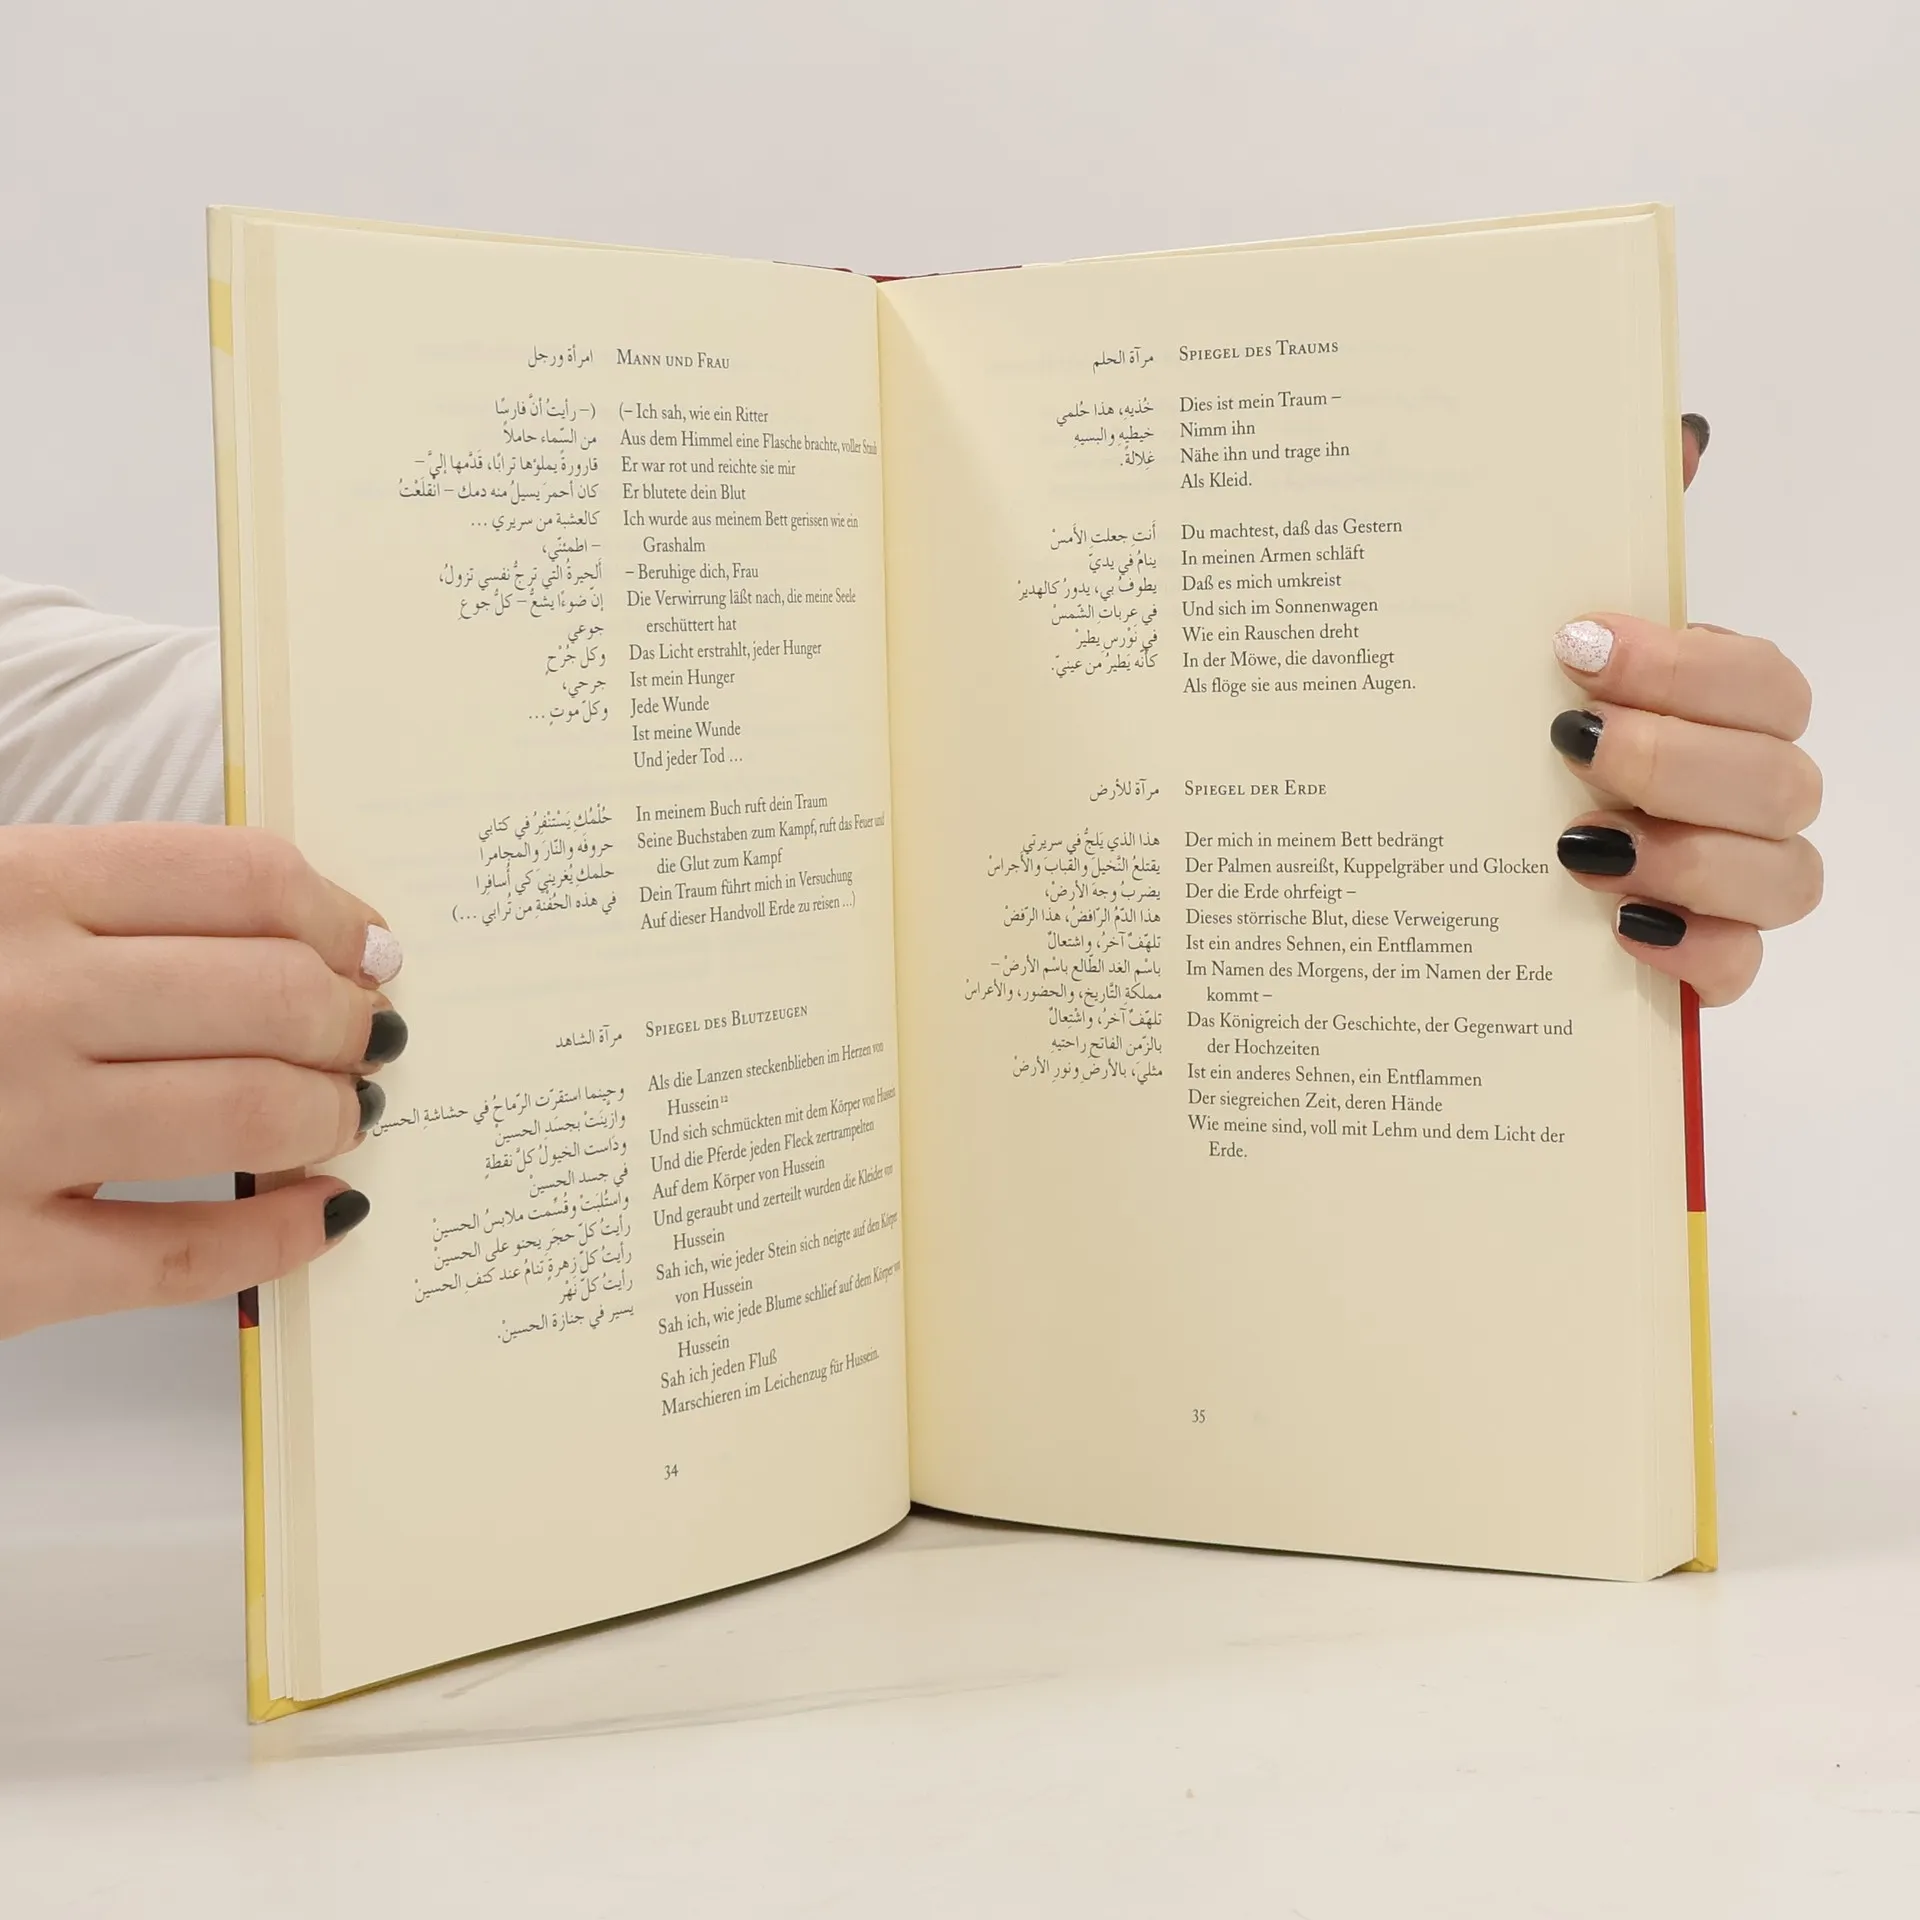 امرأة ورجل
(– رأيتُ أنَّ فارسًا
من السّماء حاملاً
قارورةً يملؤها ترابًا، قَدَّمها إليَّ –
كان أحمرَ يسيلُ منه دمك – انْقلَعْتُ
كالعشبة من سريري ...
– اطمئنّي،
اَلحيرةُ التي ترجُّ نفسي تزولُ،
إنّ ضوءًا يشعُّ – كلُّ جوعٍ
جوعي
وكل جُرْحٍ
جرحي،
وكلّ موتٍ ...
حُلْمُكِ يَسْتَنْفِرُ في كتابي
حروفَه والنّارَ والمجامرا
حلمكِ يُغريني كي أُسافِرا
في هذه الحُفْنةِ من تُرابي ...)
MANN UND FRAU
(– Ich sah, wie ein Ritter
Aus dem Himmel eine Flasche brachte, voller Staub
Er war rot und reichte sie mir
Er blutete dein Blut
Ich wurde aus meinem Bett gerissen wie ein
Grashalm
– Beruhige dich, Frau
Die Verwirrung läßt nach, die meine Seele
erschüttert hat
Das Licht erstrahlt, jeder Hunger
Ist mein Hunger
Jede Wunde
Ist meine Wunde
Und jeder Tod ...
In meinem Buch ruft dein Traum
Seine Buchstaben zum Kampf, ruft das Feuer und
die Glut zum Kampf
Dein Traum führt mich in Versuchung
Auf dieser Handvoll Erde zu reisen ...)
مرآة الشاهد
وحينما استقرّت الرّماحُ في حشاشةِ الحسينْ
وازّيَنَتْ بجسَدِ الحسينْ
وداست الخيولُ كلَّ نقطةٍ
في جسد الحسينْ
واستُلبَتْ وقُسِّمت ملابسُ الحسينْ
رأيتُ كلّ حجَرٍ يحنو على الحسينْ
رأيتُ كلّ زهرةٍ تنامُ عند كتفِ الحسينْ
رأيتُ كلّ نَهْرْ
يسير في جنازة الحسينْ.
SPIEGEL DES BLUTZEUGEN
Als die Lanzen steckenblieben im Herzen von
Hussein¹²
Und sich schmückten mit dem Körper von Hussein
Und die Pferde jeden Fleck zertrampelten
Auf dem Körper von Hussein
Und geraubt und zerteilt wurden die Kleider von
Hussein
Sah ich, wie jeder Stein sich neigte auf den Körper
von Hussein
Sah ich, wie jede Blume schlief auf dem Körper von
Hussein
Sah ich jeden Fluß
Marschieren im Leichenzug für Hussein.
34
مرآة الحلم
خُذيهِ، هذا حُلمي
خيطيهِ والبسيهِ
غِلالةً.
أَنتِ جعلتِ الأَمسْ
ينامُ في يديّ
يطوفُ بي، يدورُ كالهديرْ
في عرباتِ الشّمسْ
في نَوْرسٍ يطيرْ
كأنّه يَطيرُ من عينيّ.
SPIEGEL DES TRAUMS
Dies ist mein Traum –
Nimm ihn
Nähe ihn und trage ihn
Als Kleid.
Du machtest, daß das Gestern
In meinen Armen schläft
Daß es mich umkreist
Und sich im Sonnenwagen
Wie ein Rauschen dreht
In der Möwe, die davonfliegt
Als flöge sie aus meinen Augen.
مرآة للأرض
هذا الذي يَلجُّ في سريرتي
يقتلعُ النّخيلَ والقبابَ والأجراسْ
يضربُ وجهَ الأرضْ،
هذا الدّمُ الرّافضُ، هذا الرّفضْ
تلهّفٌ آخرُ، واشتعالٌ
باسْم الغد الطّالع باسْم الأرضْ –
مملكةِ التّاريخ، والحضور، والأعراسْ
تلهّفٌ آخرُ، واشْتِعالٌ
بالزّمن الفاتحِ راحتيهِ
مثليَ، بالأرضِ ونورِ الأرضْ
SPIEGEL DER ERDE
Der mich in meinem Bett bedrängt
Der Palmen ausreißt, Kuppelgräber und Glocken
Der die Erde ohrfeigt –
Dieses störrische Blut, diese Verweigerung
Ist ein andres Sehnen, ein Entflammen
Im Namen des Morgens, der im Namen der Erde
kommt –
Das Königreich der Geschichte, der Gegenwart und
der Hochzeiten
Ist ein anderes Sehnen, ein Entflammen
Der siegreichen Zeit, deren Hände
Wie meine sind, voll mit Lehm und dem Licht der
Erde.
35